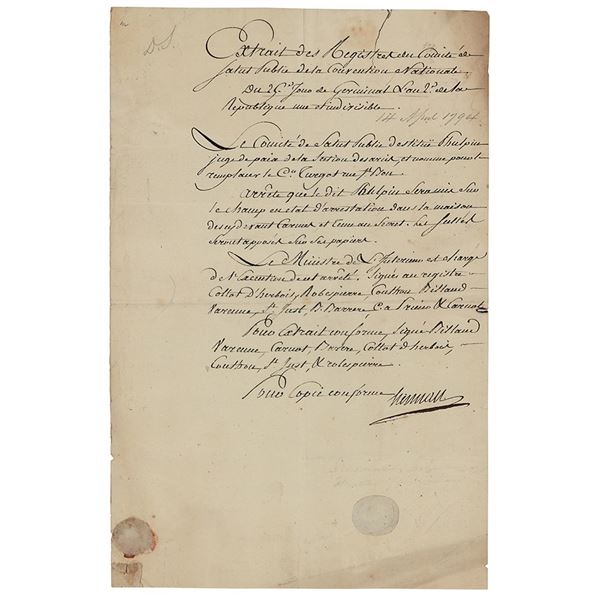 D.S.
Extrait des Registres du Comité de
Salut Public de la Convention Nationale
Du 25e Jour de Germinal L'an 2e de la
République une et indivisible.
14 April 1794
Le Comité de Salut Public destitüe Phulpin
juge de paix de la Section des arcis, et nomme pour le
remplacer le Cen Turgot rue St Bon
arrête que le dit Phulpin Sera mis Sur
le champ en etat d'arrestation dans la maison
des cydevant Carmes et tenu au Secret. Les Scellés
Seront apposés Sur Ses papiers.
Le Ministre de L'Interieur est chargé
de l'Execution de cet arrêté. Signés au registre
Collot d'herbois, Robespierre, Couthon, Billaud
Varenne, St Just, B. Barrere, C. a Prieur & Carnot
Pour Extrait conforme, Signé Billaud
Varenne, Carnot, Barere, Collot d'herbois,
Couthon, St Just, & robespierre.
Pour Copie conforme herman